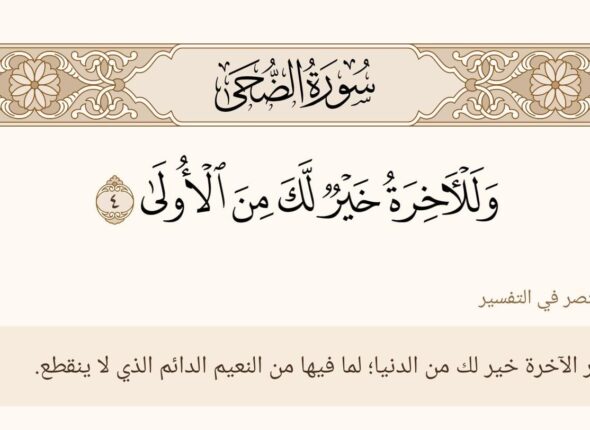 سُورَةُ الضُّحَى
وَلَلْأٓخِرَةُ خَيْرٌ لَّكَ مِنَ ٱلْأُولَىٰ ٤
في التفسير
الآخرة خير لك من الدنيا؛ لما فيها من النعيم الدائم الذي لا ينقطع.